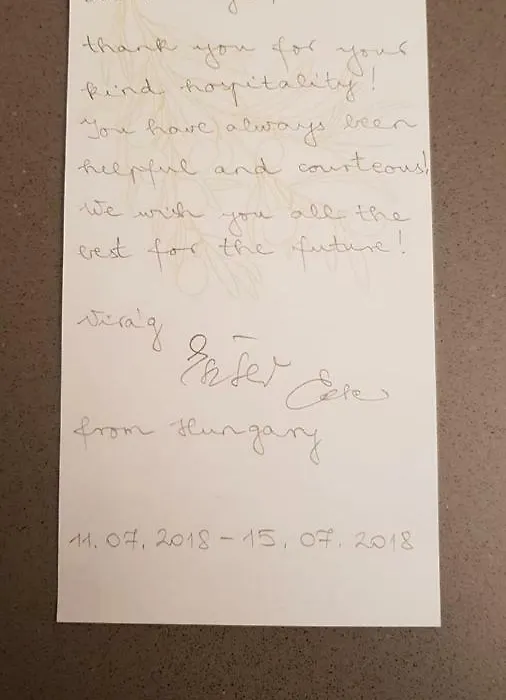 thank you for your
kind hospitality!
You have always been
helpful and courteous!
We wish you all the
best for the future!
Virág
from Hungary
11.07.2018 - 15.07.2018